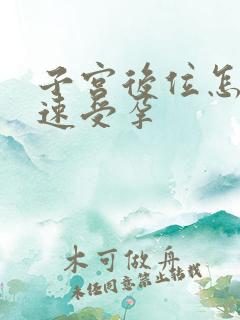 子宫後位怎
速受孕
木可做舟
未经同意禁止转载